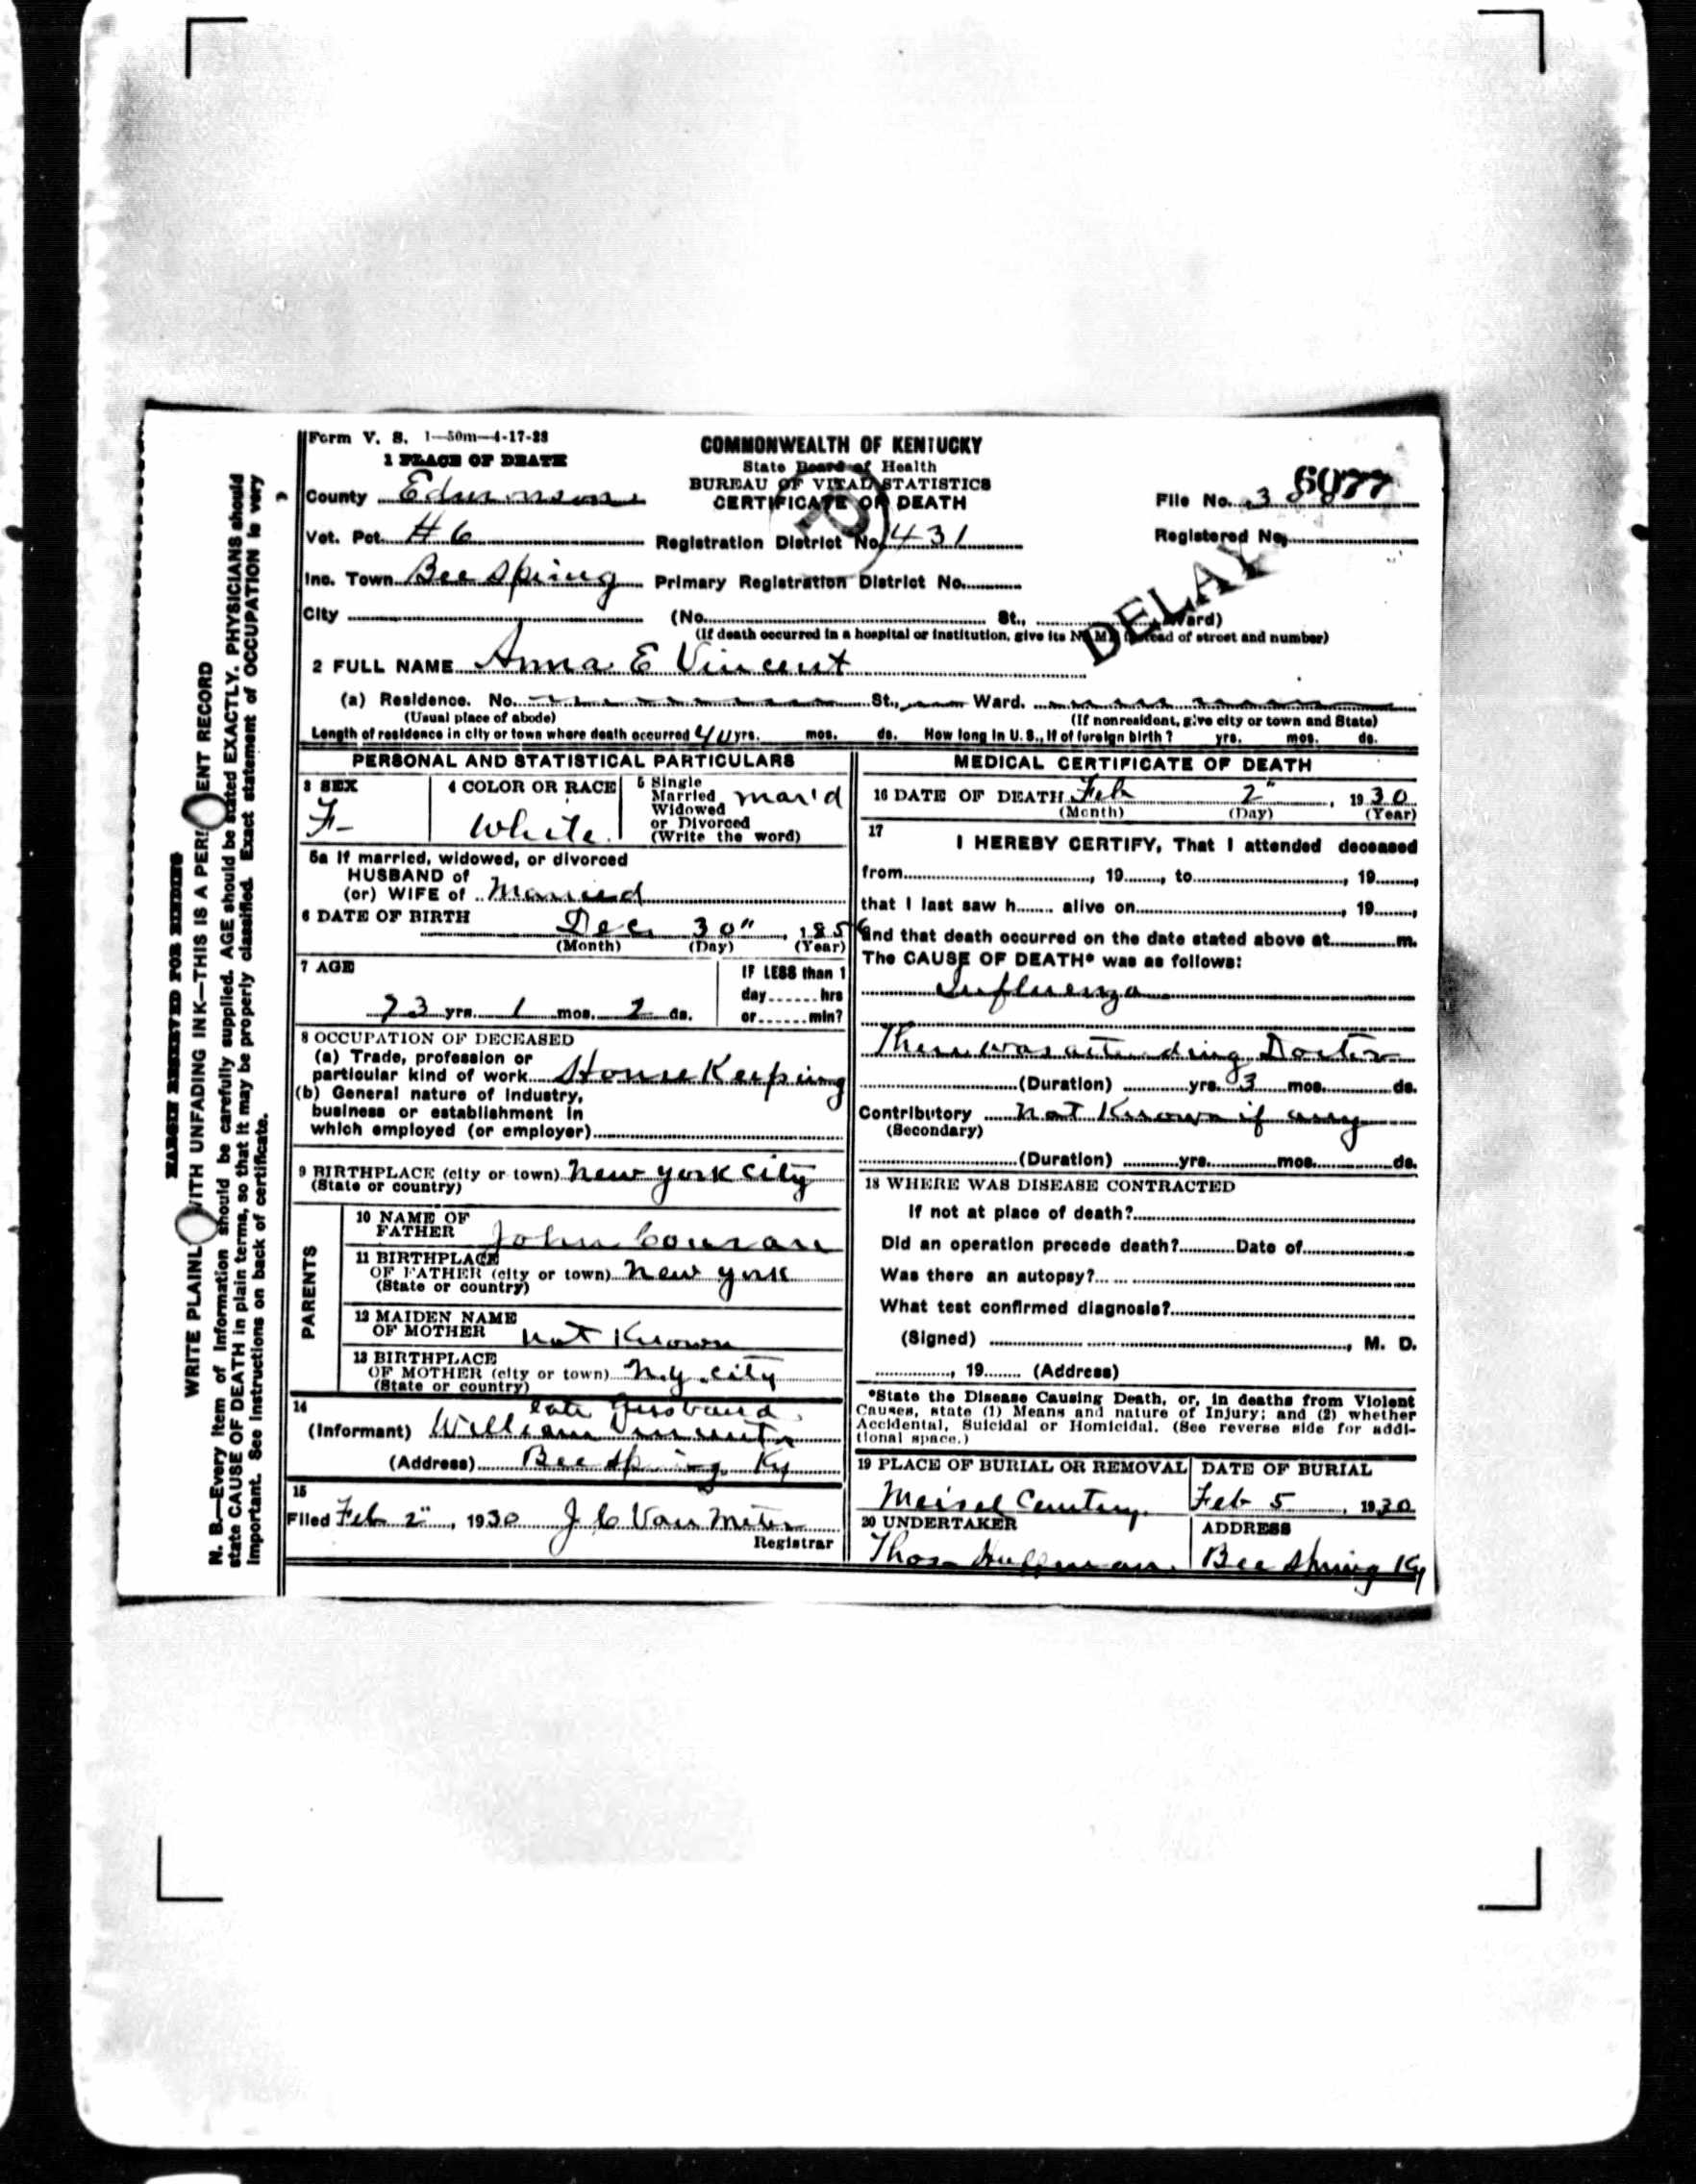 Form V. S. 1—50m—4-17-28
1 PLACE OF DEATH
COMMONWEALTH OF KENTUCKY
State Board of Health
BUREAU OF VITAL STATISTICS
CERTIFICATE OF DEATH
6077
County Edmonson
File No. 3
Vot. Pct. # 6
Registration District No. 431
Registered No.
Inc. Town Bee Spring
Primary Registration District No.
DELAY
City (No. St., Ward)
(If death occurred in a hospital or institution, give its NAME instead of street and number)
2 FULL NAME Anna E Vincent
(a) Residence. No. St., Ward.
(Usual place of abode) (If nonresident, give city or town and State)
Length of residence in city or town where death occurred yrs. mos. ds. How long in U. S., if of foreign birth? yrs. mos. ds.
PERSONAL AND STATISTICAL PARTICULARS
3 SEX
F-
4 COLOR OR RACE
White
5 Single
Married
Widowed
or Divorced
(Write the word)
mar'd
5a If married, widowed, or divorced
HUSBAND of
(or) WIFE of Married
6 DATE OF BIRTH
Dec 30" 1856
(Month) (Day) (Year)
7 AGE
73 yrs. 1 mos. 2 ds.
IF LESS than 1
day hrs
or min?
8 OCCUPATION OF DECEASED
(a) Trade, profession or
particular kind of work House Keeping
(b) General nature of industry,
business or establishment in
which employed (or employer)
9 BIRTHPLACE (city or town) New York City
(State or country)
PARENTS
10 NAME OF
FATHER John
11 BIRTHPLACE
OF FATHER (city or town) New York
(State or country)
12 MAIDEN NAME
OF MOTHER not Known
13 BIRTHPLACE
OF MOTHER (city or town) N.Y. City
(State or country)
14
late Husband
(Informant) William Vincent
(Address) Bee Spring Ky
15
Filed Feb 2", 1930 J C Van Meter
Registrar
MEDICAL CERTIFICATE OF DEATH
16 DATE OF DEATH Feb 2", 1930
(Month) (Day) (Year)
17
I HEREBY CERTIFY, That I attended deceased
from , 19 , to , 19 ,
that I last saw h alive on , 19 ,
and that death occurred on the date stated above at m.
The CAUSE OF DEATH* was as follows:
Influenza
There was attending Doctor
(Duration) yrs. 3 mos. ds.
Contributory not Known if any
(Secondary)
(Duration) yrs. mos. ds.
18 WHERE WAS DISEASE CONTRACTED
If not at place of death?
Did an operation precede death? Date of
Was there an autopsy?
What test confirmed diagnosis?
(Signed) , M. D.
, 19 (Address)
*State the Disease Causing Death, or, in deaths from Violent
Causes, state (1) Means and nature of Injury; and (2) whether
Accidental, Suicidal or Homicidal. (See reverse side for addi-
tional space.)
19 PLACE OF BURIAL OR REMOVAL
Meisel
DATE OF BURIAL
Feb 5, 1930
20 UNDERTAKER
Thos Huffman
ADDRESS
Bee Spring Ky
MARGIN RESERVED FOR BINDING
WRITE PLAINL WITH UNFADING INK—THIS IS A PER ENT RECORD
N. B.—Every item of information should be carefully supplied. AGE should be stated EXACTLY. PHYSICIANS should
state CAUSE OF DEATH in plain terms, so that it may be properly classified. Exact statement of OCCUPATION is very
important. See instructions on back of certificate.